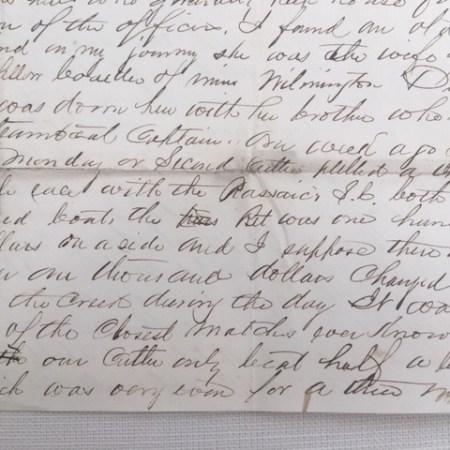 of the officers. I found an old
and in my journey she was the wife
fellow boarder of mine Wilmington D
was down here with her brother who
steamboat Captain. One week ago
Monday or Second Cutter pulled a
race with the Passaic's I.b. both
boats the bet was one hun
dollars on a side and I suppose there
one thousand dollars changed
the Creek during the day It was
of the closest matches ever know
our Cutter only beat half a
ich was very even for a three m